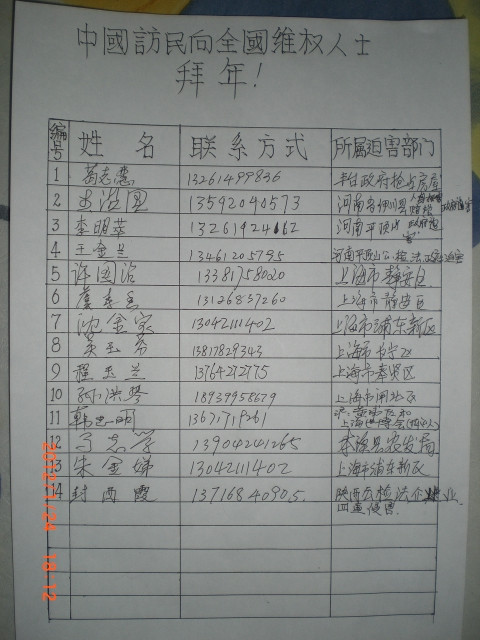 中國訪民向全國维权人士
拜年!
编号 姓名 联系方式 所属迫害部门
1 葛志慧 13261499836 丰台政府抢占房屋
2 13592040573 河南省
3 李明萃 13261924162 河南平顶山
4 王金兰 13461205795 河南平顶山公检法
5 许国治 13381758020 上海市静安区
6 虞 13126857260 上海市静安区
7 沈金家 13042111402 上海市浦东新区
8 黄玉芬 13817829343 上海市长宁区
9 程玉兰 13764272175 上海市奉贤区
10 孙洪琴 18937958679 上海市闸北区
11 韩忠明 13671719261
12 志学 13904241265 本溪县农发局
13 朱金娣 13042111402 上海市浦东新区
14 封西霞 13716840905 陕西公检法企业
2012/1/24 16:12